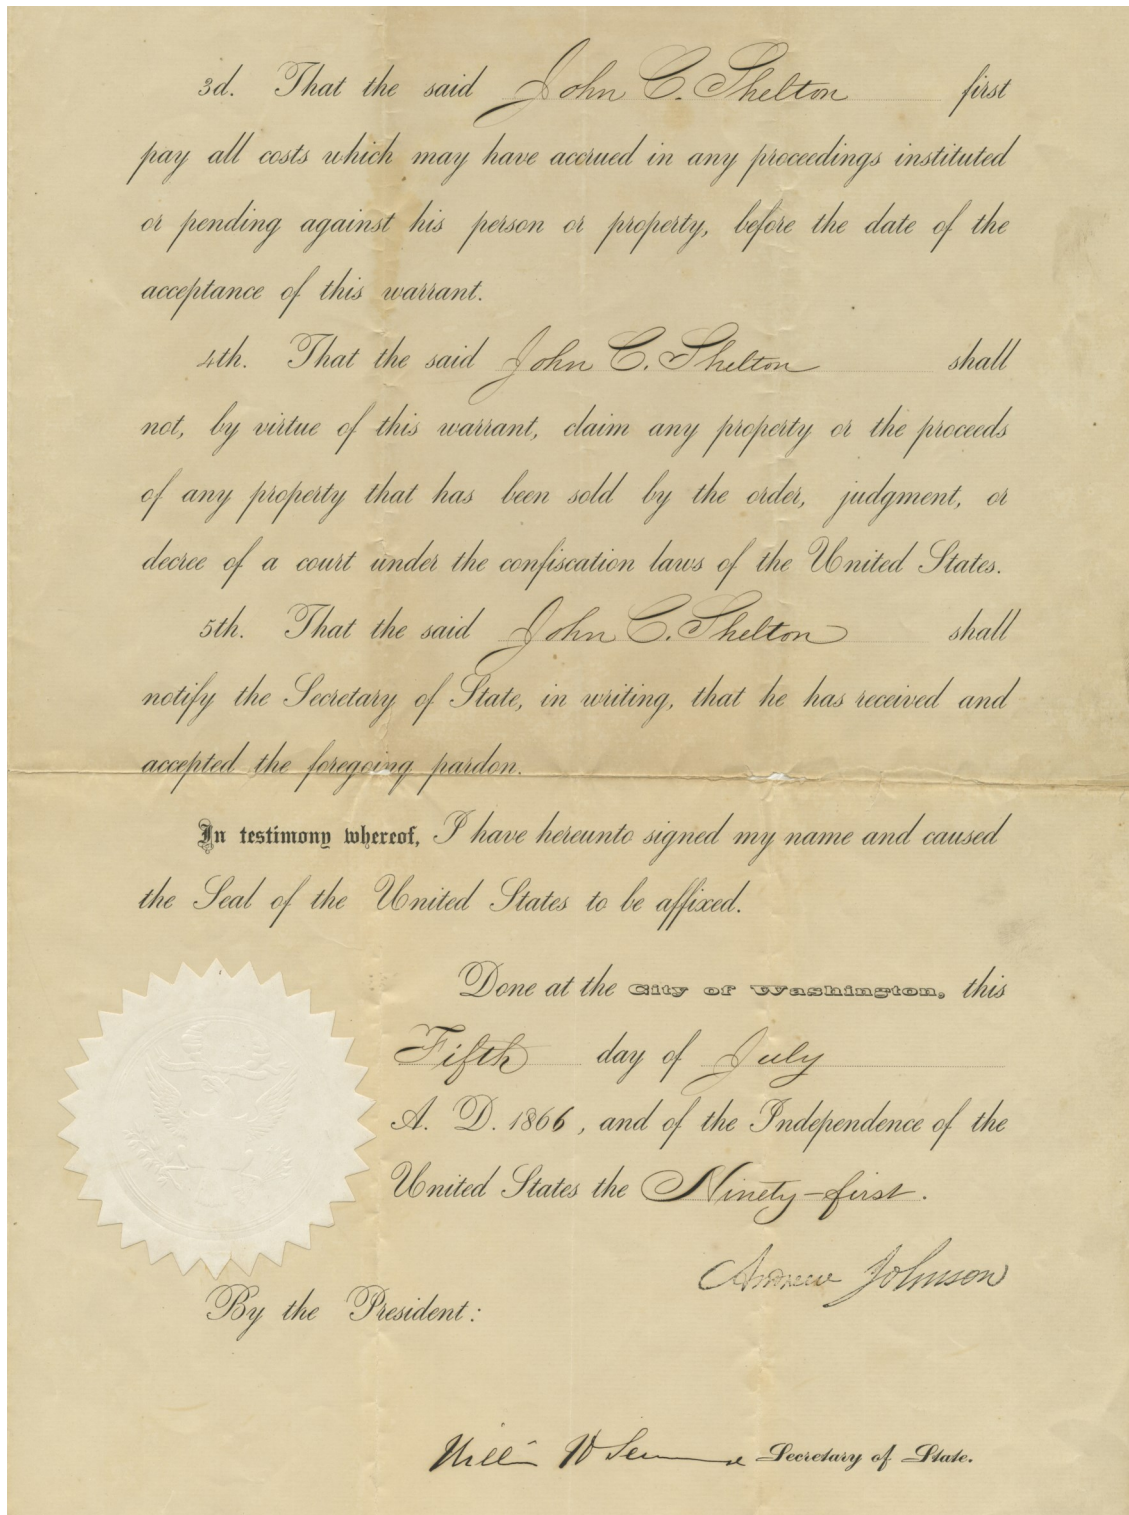 3d. That the said John C. Shelton first
pay all costs which may have accrued in any proceedings instituted
or pending against his person or property, before the date of the
acceptance of this warrant.
4th. That the said John C. Shelton shall
not, by virtue of this warrant, claim any property or the proceeds
of any property that has been sold by the order, judgment, or
decree of a court under the confiscation laws of the United States.
5th. That the said John C. Shelton shall
notify the Secretary of State, in writing, that he has received and
accepted the foregoing pardon.
In testimony whereof, I have hereunto signed my name and caused
the Seal of the United States to be affixed.
Done at the City of Washington, this
Fifth day of July
A. D. 1866, and of the Independence of the
United States the Ninety-first.
Andrew Johnson
By the President:
Secretary of State.